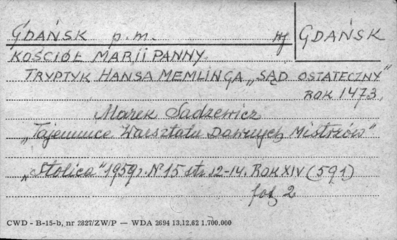 GDAŃSK p.m. GDAŃSK
KOŚCIÓŁ MARII PANNY.
TRYPTYK HANSA MEMLINGA „SĄD OSTATECZNY"
ROK 1473.
Marek Sadzewicz
„Tajemnice Warsztatu Dawnych Mistrzów"
„Stolica" 1959r. Nº 15 str. 12-14. ROK XIV (591)
fot. 2
CWD - B-15-b, nr 2827/ZW/P — WDA 2694 13.12.62 1.700.000